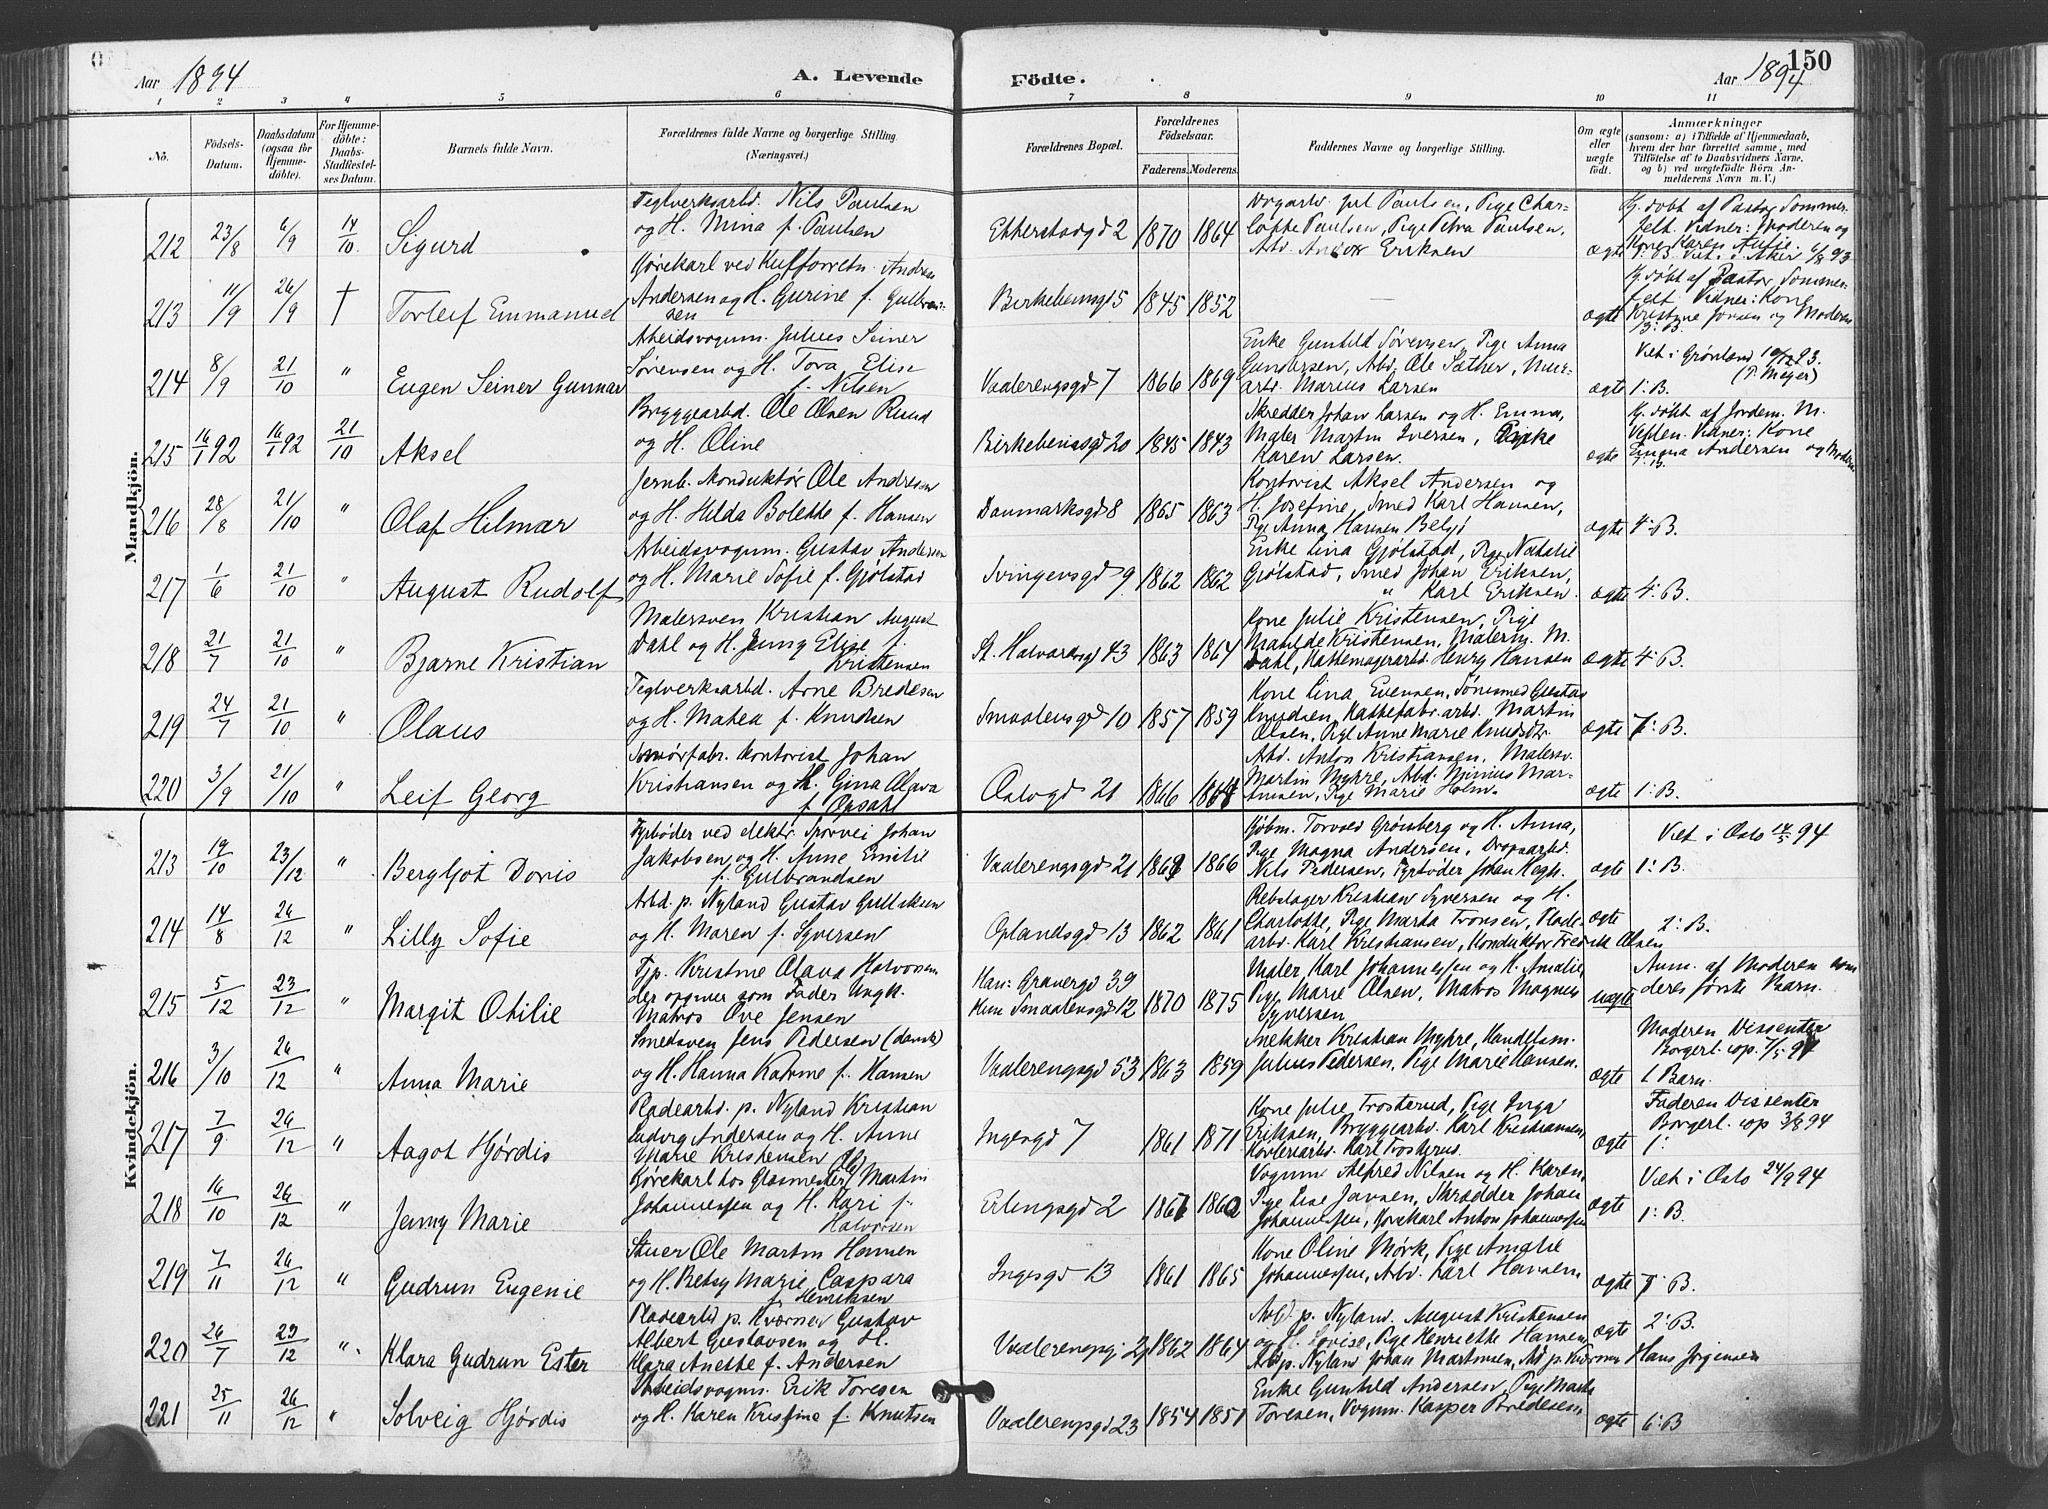 Aar 1894
A. Levende
Födte.
Aar 1894
150
1 2 3 4 5 6 7 8 9 10 11
No.
Födsels-Datum.
Daabsdatum (ogsaa for Hjemmedöbte).
For Hjemmedöbte: Daabs-Stadfæstelses Datum.
Barnets fulde Navn.
Forældrenes fulde Navne og borgerlige Stilling. (Næringsvei.)
Forældrenes Bopæl.
Forældrenes Födselsaar.
Faderens. Moderens.
Faddernes Navne og borgerlige Stilling.
Om ægte eller uægte födt.
Anmærkninger
(saasom: a) i Tilfælde af Hjemmedaab, hvem der har forrettet samme, med Tilföielse af to Daabsvidners Navne, og b) ved uægtefödte Börn Anmelderens Navn m. V.)
Mandkjön.
212 23/8 6/9 14/10 Sigurd
Teglverksarbd. Nils Paulsen
og H. Mina f. Paulsen
Ekkerstadgd 2 1870 1864
Paulsen, Pige Charlotte Paulsen, Pige Petra Paulsen,
Arb. Eriksen
ægte
Hj. döbt af Pastor Sommerfelt. Vidner: Moderen og
Kone Karen
213 11/9 26/9 † Torleif Emmanuel
Kjørekarl ved Andreas
Andersen og H. Gurine f. Gulbransen
Birkebeinsgd 5 1845 1852
ægte
Hj. döbt af Pastor Sommerfelt. Vidner: Kone
og Moderen
214 8/9 21/10 " Eugen Seiner Gunnar
Arbeidsvognm. Julius Seiner
Sørensen og H. Tora Elise
f. Nilsen
Vaalerengsgd 7 1866 1869
Enke Gunhild Sørensen, Pige Anna
Gundersen, Arbd. Ole Sæther, Murarb. Marius Larsen
ægte
Viet i Grönland 10/12 93.
(P. Meyer)
1: B.
215 16/1 92 16/1 92 21/10 Aksel
Bryggearbd. Ole Olsen Ruud
og H. Oline
Birkebeinsgd 20 1845 1843
Skredder Johan Larsen og H. Emma,
Maler Martin Iversen, Pige
Karen Larsen.
ægte
Hj. döbt af Jordem. M.
Vidner: Kone
Emma Andersen og Moderen
216 28/8 21/10 " Olaf Hilmar
Jernb. Konduktør Ole Andresen
og H. Hilda Bolette f. Hansen
Danmarksgd 8 1865 1863
Kontorist Aksel Andersen og
H. Josefine, Smed Karl Hansen,
Pige Anna Hansen
ægte 4: B.
217 1/6 21/10 " August Rudolf
Arbeidsvognm. Gustav Andersen
og H. Marie Sofie f. Gjølstad
Svingensgd 9 1862 1862
Enke Lina Gjølstad, Pige Natalie
Gjølstad, Smed Johan Eriksen,
" Karl Eriksen.
ægte 4: B.
218 21/7 21/10 " Bjarne Kristian
Malersven Kristian August
Dahl og H. Jenny Elise f.
Kristensen
St. Halvardsgd 43 1863 1864
Kone Julie Kristensen, Pige
Matilde Kristensen, Malerm. M.
Dahl, Hattemagerarbd. Henry Hansen
ægte 4: B.
219 24/7 21/10 " Olaus
Teglverksarbd. Arne Bredesen
og H. Mathea f. Knudsen
Smaalensgd 10 1857 1859
Kone Lina Evensen, Gustav
Knudsen, Martin
Olsen, Pige Anne Marie Knudsdtr.
ægte 7: B.
220 3/9 21/10 " Leif Georg
Smørfabr. Kontorist Johan
Kristiansen og H. Gina Olava
f. Opsahl
Oslogd 21 1866
Arbd. Anton Kristiansen, Malersv.
Martin Myhre, Arbd.
Pige Marie Holm.
ægte 1: B.
Kvindekjön.
213 19/10 23/12 " Bergljot Doris
Fyrbøder ved elektr. Sporvei Johan
Jakobsen og H. Anne Emilie
f. Gulbrandsen
Vaalerengsgd 21 1866
Kjøbm. Torvald Grønberg og H. Anna,
Pige Magna Andersen,
Nils Pedersen, Fyrbøder Johan
ægte
Viet i Oslo 94
1: B.
214 14/8 26/12 " Lilly Sofie
Arbd. p. Nyland Gustav Gulliksen
og H. Maren f. Syversen
Oplandsgd 13 1862 1861
Rebslager Kristian Syversen og H.
Charlotte, Pige Marta Tronsen, Pladearbd. Karl Kristiansen, Konduktør Fredrik Olsen
ægte 2: B.
215 5/12 23/12 " Margit Otilie
Tjp. Kristine Olava Halvorsen
der opgiver som Fader Ungk.
Matros Ove Jensen
Han: Gravergd 39
Hun Smaalensgd 12 1870 1875
Maler Karl Johannessen og H. Amalie,
Pige Marie Olsen, Matros Magnus
Syversen
uægte
Anm. af Moderen som
deres første Barn.
216 3/10 26/12 " Anna Marie
Smedsven Jens Pedersen (dansk)
og H. Hanna Katrine f. Hansen
Vaalerengsgd 53 1863 1859
Snekker Kristian Myhre, Handelsm.
Julius Pedersen, Pige Marie Hansen.
ægte
Moderen Dissenter
Borgerl. op. 7/5 94
1 Barn.
217 7/9 26/12 " Aagot Hjørdis
Pladearbd. p. Nyland Kristian
Ludvig Andersen og H. Anne
Marie Kristensen
Ingesgd 7 1861 1871
Kone Julie Trosterud, Pige Inga
Eriksen, Bryggearbd. Karl Kristiansen,
ægte
Faderen Dissenter
Borgerl. op 3/8 94
1:
218 16/10 26/12 " Jenny Marie
Kjørekarl hos Glasmester Martin
Johannessen og H. Kari f.
Halvorsen
Erlingsgd 2
Vognm Alfred Nilsen og H. Karen,
Pige Lise Jansen, Skrædder Johan
Johannessen, Kjørekarl Anton Johannessen
ægte
Viet i Oslo 24/9 94
1: B
219 7/11 26/12 " Gudrun Eugenie
Stuer Ole Martin Hansen
og H. Betsy Marie Caspara
f. Henriksen
Ingesgd 13 1861 1865
Kone Oline Mørk, Pige Amalie
Johannessen, Arbd. Karl Hansen.
ægte B.
220 26/7 23/12 " Klara Gudrun Ester
Pladearbd p. Kværner Gustav
Albert Gustavsen og H.
Klara Anette f. Andersen
1862 1864
Arbd. p. Nyland. August Kristensen
og H. Lovise, Pige Henriette Hansen,
Arb. p. Nyland Johan Martinsen, Arb. p. Kværner Hans Jörgensen
ægte 2: B.
221 25/11 26/12 " Solveig Hjørdis
Arbeidsvognm. Erik Toresen
og H. Karen Kristine f. Knutsen
Vaalerengsgd 23 1854 1851
Enke Gunhild Andersen, Pige
Toresen, Vognm. Kasper Bredesen
ægte 6: B